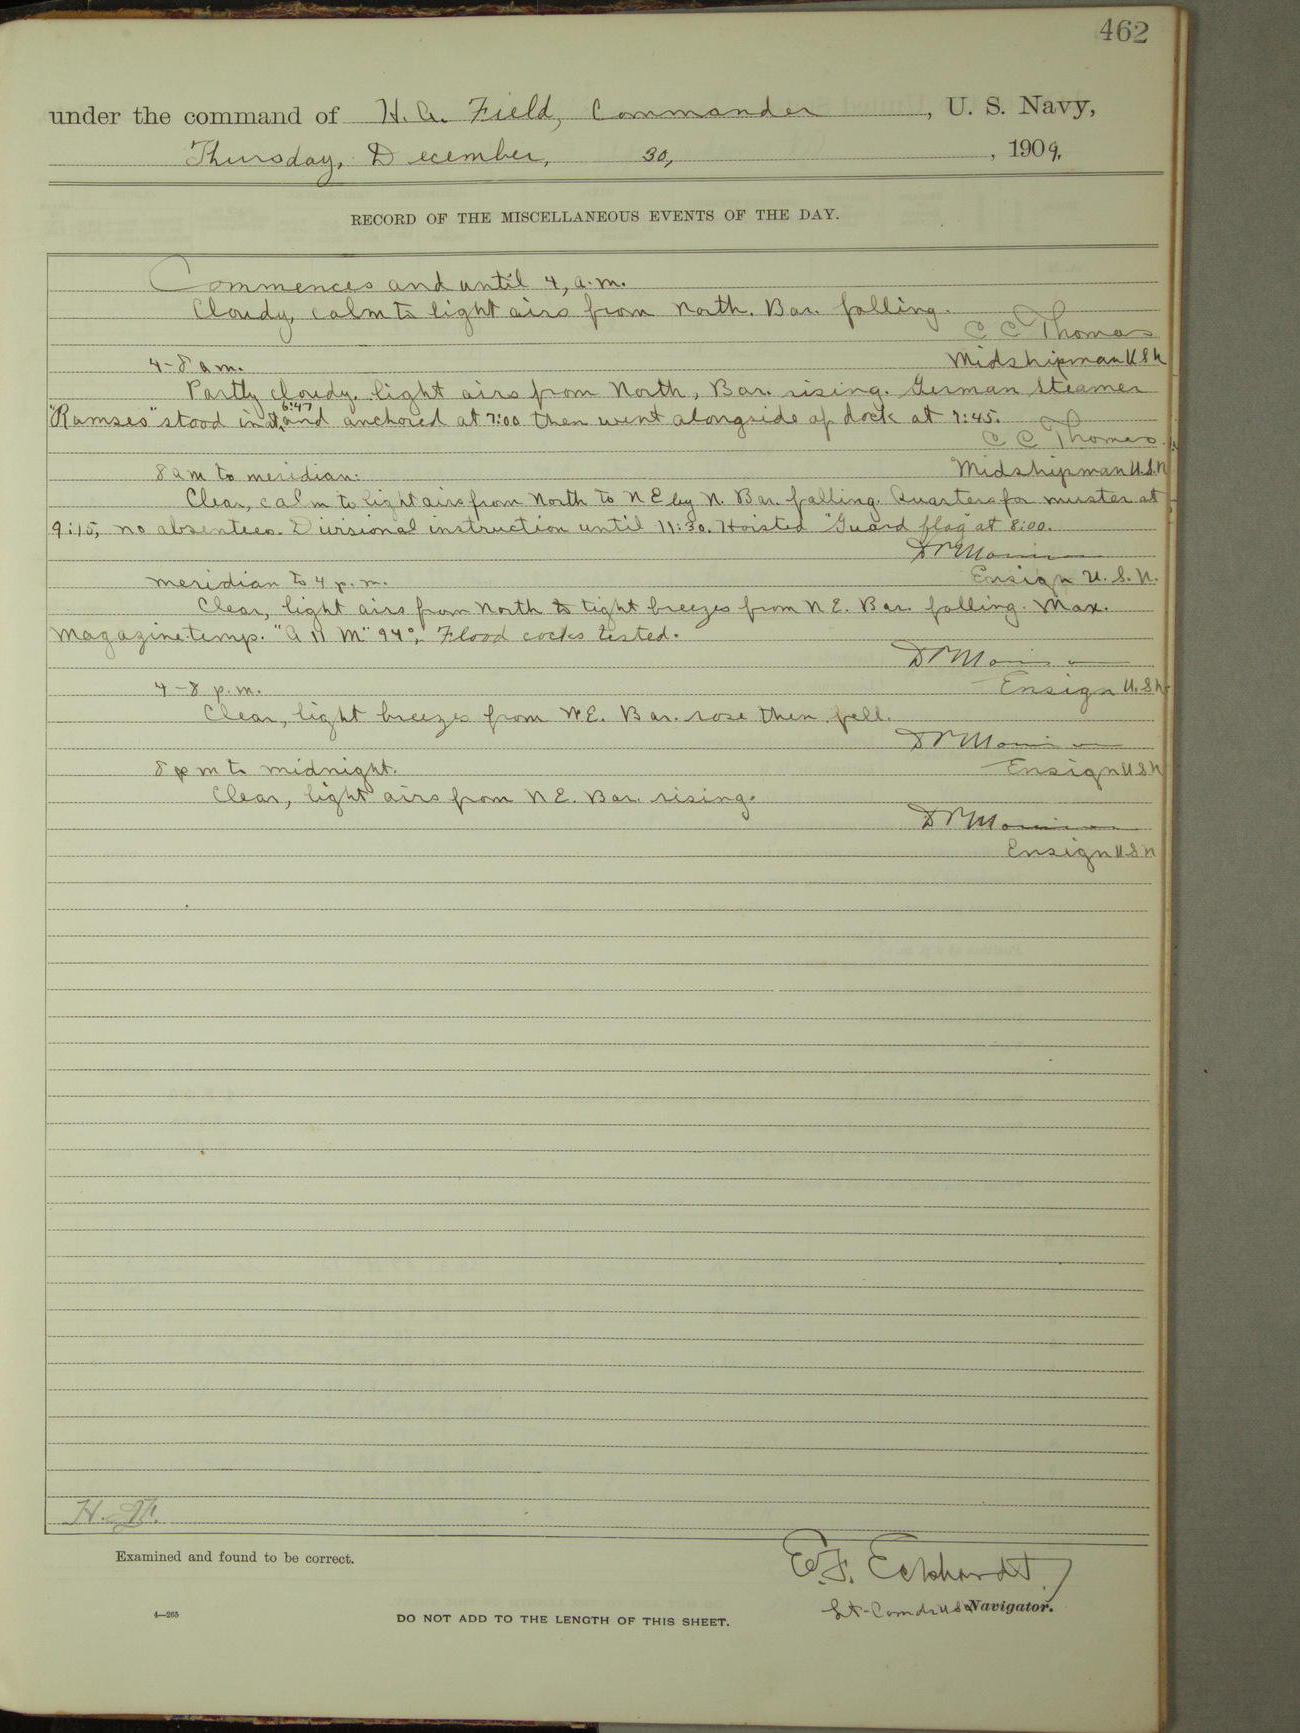 462
under the command of H. A. Field, Commander, U. S. Navy,
Thursday, December, 30, , 1909.
RECORD OF THE MISCELLANEOUS EVENTS OF THE DAY.
Commences and until 4, a.m.
Cloudy, calm to light airs from North. Bar. falling.
C C Thomas
Midshipman U S N
4-8 a m.
Partly cloudy. light airs from North, Bar. rising. German Steamer
6:47
"Ramses" stood in at, and anchored at 7:00 then went alongside of dock at 7:45.
C C Thomas.
Midshipman U.S.N
8 a m to meridian:
Clear, calm to light airs from North to N E by N. Bar. falling. Quarters for muster at
9:15, no absentees. Divisional instruction until 11:30. Hoisted "Guard flag" at 8:00.
Ensign U. S. N.
meridian to 4 p. m.
Clear, light airs from North to light breezes from N E. Bar. falling. Max.
Magazine temp. "A 11 M" 94°. Flood cocks tested.
Ensign U. S N.
4-8 p. m.
Clear, light breezes from N E. Bar. rose then fell.
Ensign U S N
8 p m to midnight.
Clear, light airs from N E. Bar. rising.
Ensign U S N
Examined and found to be correct.
E. F. Eckhardt
Lt-Comdr USN Navigator.
4—265
DO NOT ADD TO THE LENGTH OF THIS SHEET.